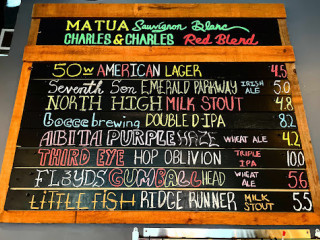 MATUA Sauvignon Blanc
CHARLES & CHARLES Red Blend
50W AMERICAN LAGER 4.5
Seventh Son EMERALD PARKWAY IRISH ALE 5.0
NORTH HIGH MILK STOUT 4.8
bocce brewing DOUBLE D-IPA 8.2
ABITA PURPLE HAZE WHEAT ALE 4.2
THIRD EYE HOP OBLIVION TRIPLE IPA 10.0
FLOYDS GUMBALLHEAD WHEAT ALE 5.6
LITTLE FISH RIDGE RUNNER MILK STOUT 5.5